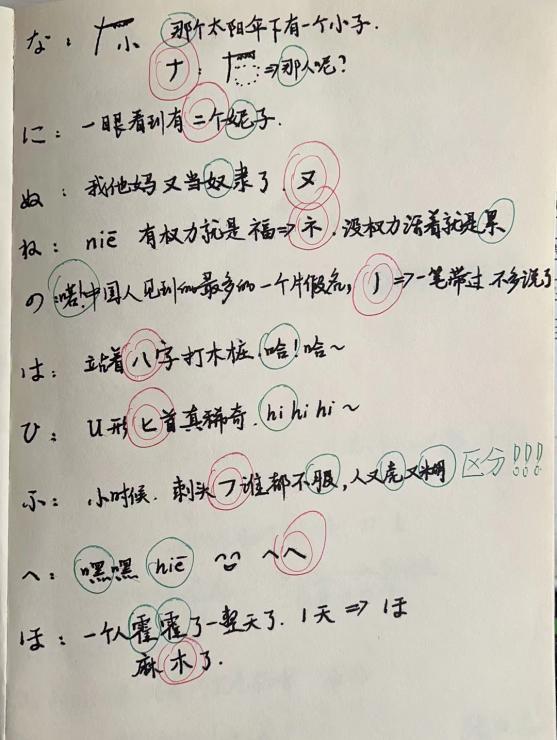 な：ナ小 那个太阳伞下有一个小子.
ナ：⇒那人呢?
に：一眼看到有二个妮子.
ぬ：我他妈又当奴隶了.又
ね：niē 有权力就是福⇒ネ.没权力活着就是累
の：喏!中国人见到的最多的一个片假名,丿⇒一笔带过 不多说了
は：站着八字打木桩.哈!哈~
ひ：U形匕首真稀奇.hi hi hi~
ふ：小时候.刺头フ谁都不服,人又虎又糊 区分!!!
へ：嘿嘿 niē へへ
ほ：一个人霍霍了一整天了.1天⇒ほ
麻木了.